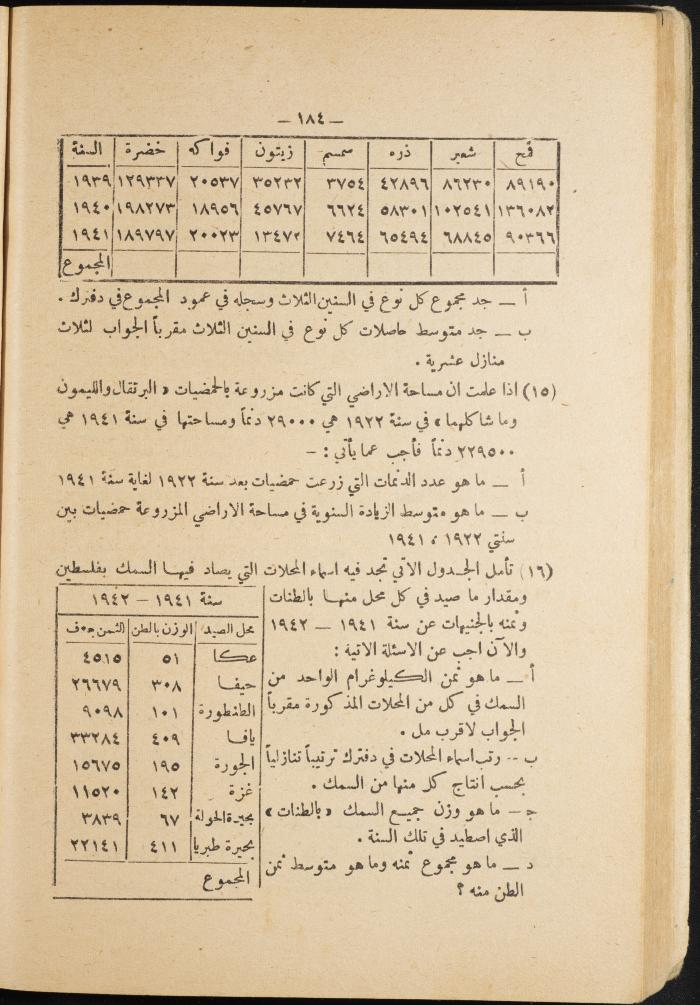 — ١٨٤ —
قمح شعير ذره سمسم زيتون فواكه خضرة السنة
٨٩١٩٠ ٨٦٢٣٠ ٤٢٨٩٦ ٣٧٥٤ ٣٥٢٣٢ ٢٠٥٣٧ ١٢٩٣٣٧ ١٩٣٩
١٣٦٠٨٢ ١٠٢٥٤١ ٥٨٣٠١ ٦٦٢٤ ٤٥٧٦٧ ١٨٩٥٦ ١٩٨٢٧٣ ١٩٤٠
٩٠٣٦٦ ٦٨٨٤٥ ٦٥٤٩٤ ٧٤٦٤ ١٣٤٧٢ ٢٠٠٢٣ ١٨٩٧٩٧ ١٩٤١
المجموع
أ — جد مجموع كل نوع في السنين الثلاث وسجله في عمود المجموع في دفترك .
ب — جد متوسط حاصلات كل نوع في السنين الثلاث مقرباً الجواب لثلاث
منازل عشرية .
(١٥) اذا علمت ان مساحة الاراضي التي كانت مزروعة بالحمضيات « البرتقال والليمون
وما شاكلهما » في سنة ١٩٢٢ هي ٢٩٠٠٠ دنماً ومساحتها في سنة ١٩٤١ هي
٢٢٩٥٠٠ دنماً فأجب عما يأتي : –
أ — ما هو عدد الدنمات التي زرعت حمضيات بعد سنة ١٩٢٢ لغاية سنة ١٩٤١
ب — ما هو متوسط الزيادة السنوية في مساحة الاراضي المزروعة حمضيات بين
سنتي ١٩٢٢ ، ١٩٤١
(١٦) تأمل الجدول الآتي تجد فيه اسماء المحلات التي يصاد فيها السمك بفلسطين
ومقدار ما صيد في كل محل منها بالطنات
وثمنه بالجنيهات عن سنة ١٩٤١ — ١٩٤٢
والآن اجب عن الاسئلة الاتية :
أ — ما هو ثمن الكيلوغرام الواحد من
السمك في كل من المحلات المذكورة مقرباً
الجواب لاقرب مل .
ب -- رتب اسماء المحلات في دفترك ترتيباً تنازلياً
بحسب انتاج كل منها من السمك .
ج — ما هو وزن جميع السمك « بالطنات »
الذي اصطيد في تلك السنة .
د — ما هو مجموع ثمنه وما هو متوسط ثمن
الطن منه ؟
سنة ١٩٤١ – ١٩٤٢
محل الصيد الوزن بالطن الثمن ج٠ف
عكا ٥١ ٤٥١٥
حيفا ٣٠٨ ٢٦٦٧٩
الطنطورة ١٠١ ٩٠٩٨
يافا ٤٠٩ ٣٣٢٨٤
الجورة ١٩٥ ١٥٦٧٥
غزة ١٤٢ ١١٥٢٠
بحيرة الحولة ٦٧ ٣٨٣٩
بحيرة طبريا ٤١١ ٢٢١٤١
المجموع